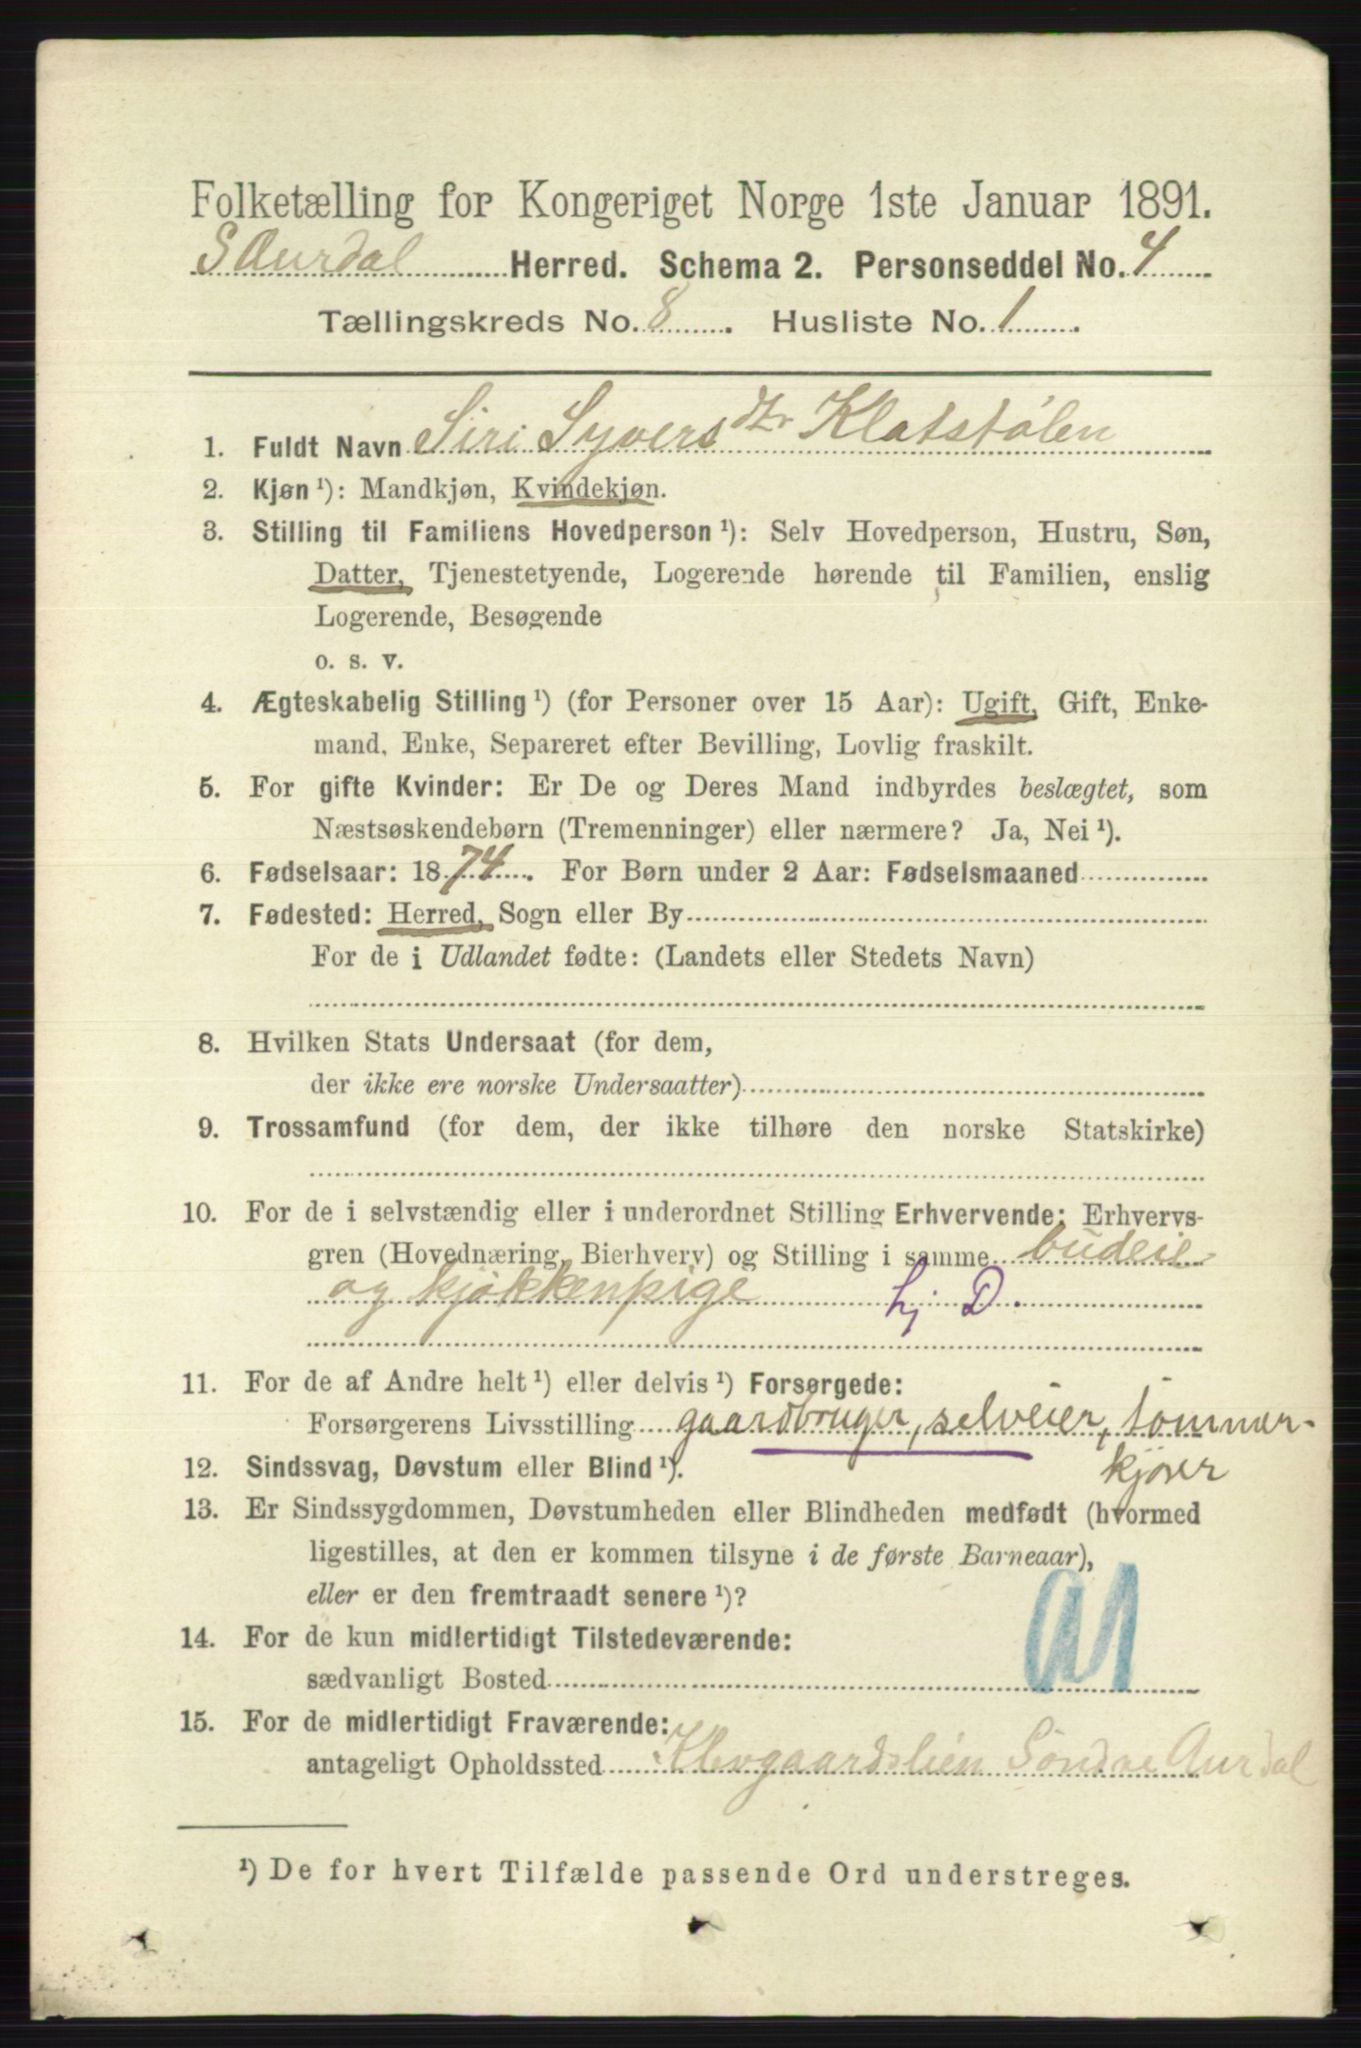 Folketælling for Kongeriget Norge 1ste Januar 1891.
S Aurdal Herred. Schema 2. Personseddel No. 4
Tællingskreds No. 8. Husliste No. 1.
1. Fuldt Navn Siri Syversdtr Klatstølen
2. Kjøn¹): Mandkjøn, Kvindekjøn.
3. Stilling til Familiens Hovedperson¹): Selv Hovedperson, Hustru, Søn,
Datter, Tjenestetyende, Logerende hørende til Familien, enslig
Logerende, Besøgende
o. s. v.
4. Ægteskabelig Stilling¹) (for Personer over 15 Aar): Ugift, Gift, Enke-
mand, Enke, Separeret efter Bevilling, Lovlig fraskilt.
5. For gifte Kvinder: Er De og Deres Mand indbyrdes beslægtet, som
Næstsøskendebørn (Tremenninger) eller nærmere? Ja, Nei¹).
6. Fødselsaar: 1874. For Børn under 2 Aar: Fødselsmaaned
7. Fødested: Herred, Sogn eller By
For de i Udlandet fødte: (Landets eller Stedets Navn)
8. Hvilken Stats Undersaat (for dem,
der ikke ere norske Undersaatter)
9. Trossamfund (for dem, der ikke tilhøre den norske Statskirke)
10. For de i selvstændig eller i underordnet Stilling Erhvervende: Erhvervs-
gren (Hovednæring, Bierhverv) og Stilling i samme budeie
og kjøkkenpige hj D.
11. For de af Andre helt¹) eller delvis¹) Forsørgede:
Forsørgerens Livsstilling gaardbruger, selveier, tømmer-
kjører
12. Sindssvag, Døvstum eller Blind¹).
13. Er Sindssygdommen, Døvstumheden eller Blindheden medfødt (hvormed
ligestilles, at den er kommen tilsyne i de første Barneaar),
eller er den fremtraadt senere¹)?
14. For de kun midlertidigt Tilstedeværende:
sædvanligt Bosted
15. For de midlertidigt Fraværende:
antageligt Opholdssted Klevgaardslien Søndre Aurdal
¹) De for hvert Tilfælde passende Ord understreges.